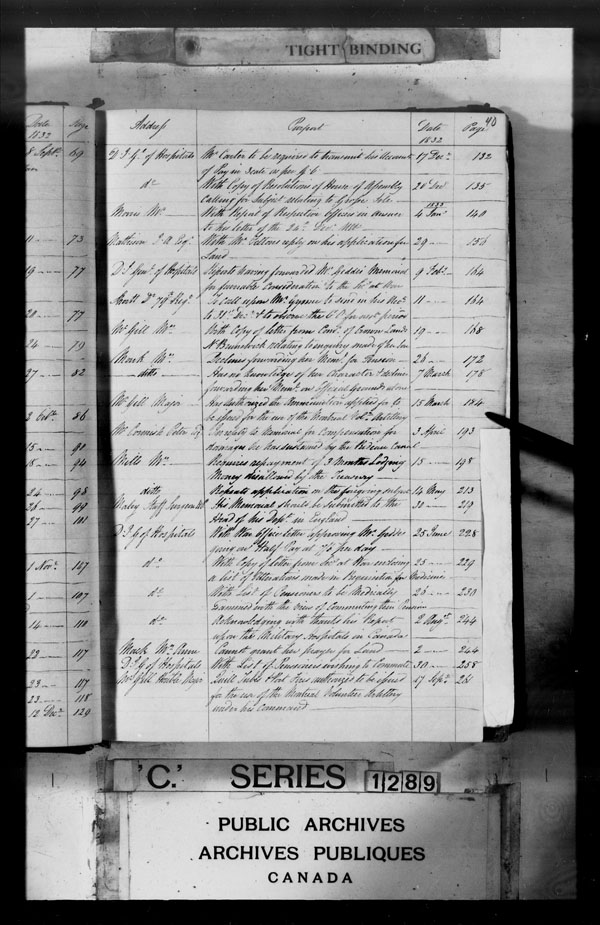 TIGHT BINDING
40
Date Page
1832
8 Sept. 69
11 — 73
19 — 77
20 — 77
24 79
27 — 82
2 Octr. 86
15 — 90
18 — 94
24 — 98
26 — 99
27 — 101
1 Novr. 147
1 — 107
14 — 110
22 — 117
23 — 117
23 — 118
12 Decr. 129
Address Purport Date Page
1832
D. I. G. of Hospitals Mr. Carter to be required to transmit his account 17 Decr. 132
of Pay in Scale as per
do. With Copy of Resolutions of House of Assembly 26 Decr. 135
calling for subject relating to Grosse Isle
1833
With Report of Respective Officers in answer 4 Jany. 140
to his letter of the 24th Decr.
Mathison Esq. With Mr. reply on his application for 29 — 156
Land
D. I. Genl. of Hospitals Reports having forwarded Mr. Geddes' Memorial 9 Feby. 164
for favorable Consideration to the at War
Dr. 79th Regt. To call upon Mr. to send in his 11 — 164
to 31st Decr. & to observe the for next period
McGill Mr. With Copy of letter from Comr. of Crown Lands 19 — 168
N. Brunswick relating to enquiry made of her Son
Mack Mrs. Declines forwarding her Meml. for Pension 26 — 172
— ditto Has no knowledge of her Character & declines 7 March 178
forwarding her Meml. on Official grounds alone
McGill Major Has authorized the Ammunition applied for to 15 March 184
be issued for the use of the Montreal Volr. Artillery
McCormish Peter Esq. In relation to Memorial for Compensation for 3 April 193
damages he has sustained by the Rideau Canal
Mills Mr. Requires repayment of 3 Months Lodging 15 — 198
Money disallowed by the Treasury
— ditto Repeats application on the foregoing subject 14 May 213
Staff Surgeon His Memorial should be submitted to the 30 — 219
Head of his Dept. in England
D. I. G. of Hospitals With War Office letter approving Mr. Geddes 25 June 228
going on Half Pay at 7/6 per day
do. With Copy of letter from Secy. at War enclosing 25 — 229
a list of alterations made in Requisition for Medicine
do. With List of Pensioners to be Medically 26 — 230
Examined with the view of Commuting their Pension
do. Acknowledging with thanks his Report 2 Augt. 244
upon the Military Hospitals in Canada
Mack Mrs. Ann Cannot grant her prayer for Land 2 — 244
D. I. G. of Hospitals With List of Pensioners wishing to Commute 30 — 258
McGill Honble. Major Tubes & Port Fires authorized to be issued 17 Sept.
for the use of the Montreal Volunteer Artillery
under his Command
'C.' SERIES 1289
PUBLIC ARCHIVES
ARCHIVES PUBLIQUES
CANADA